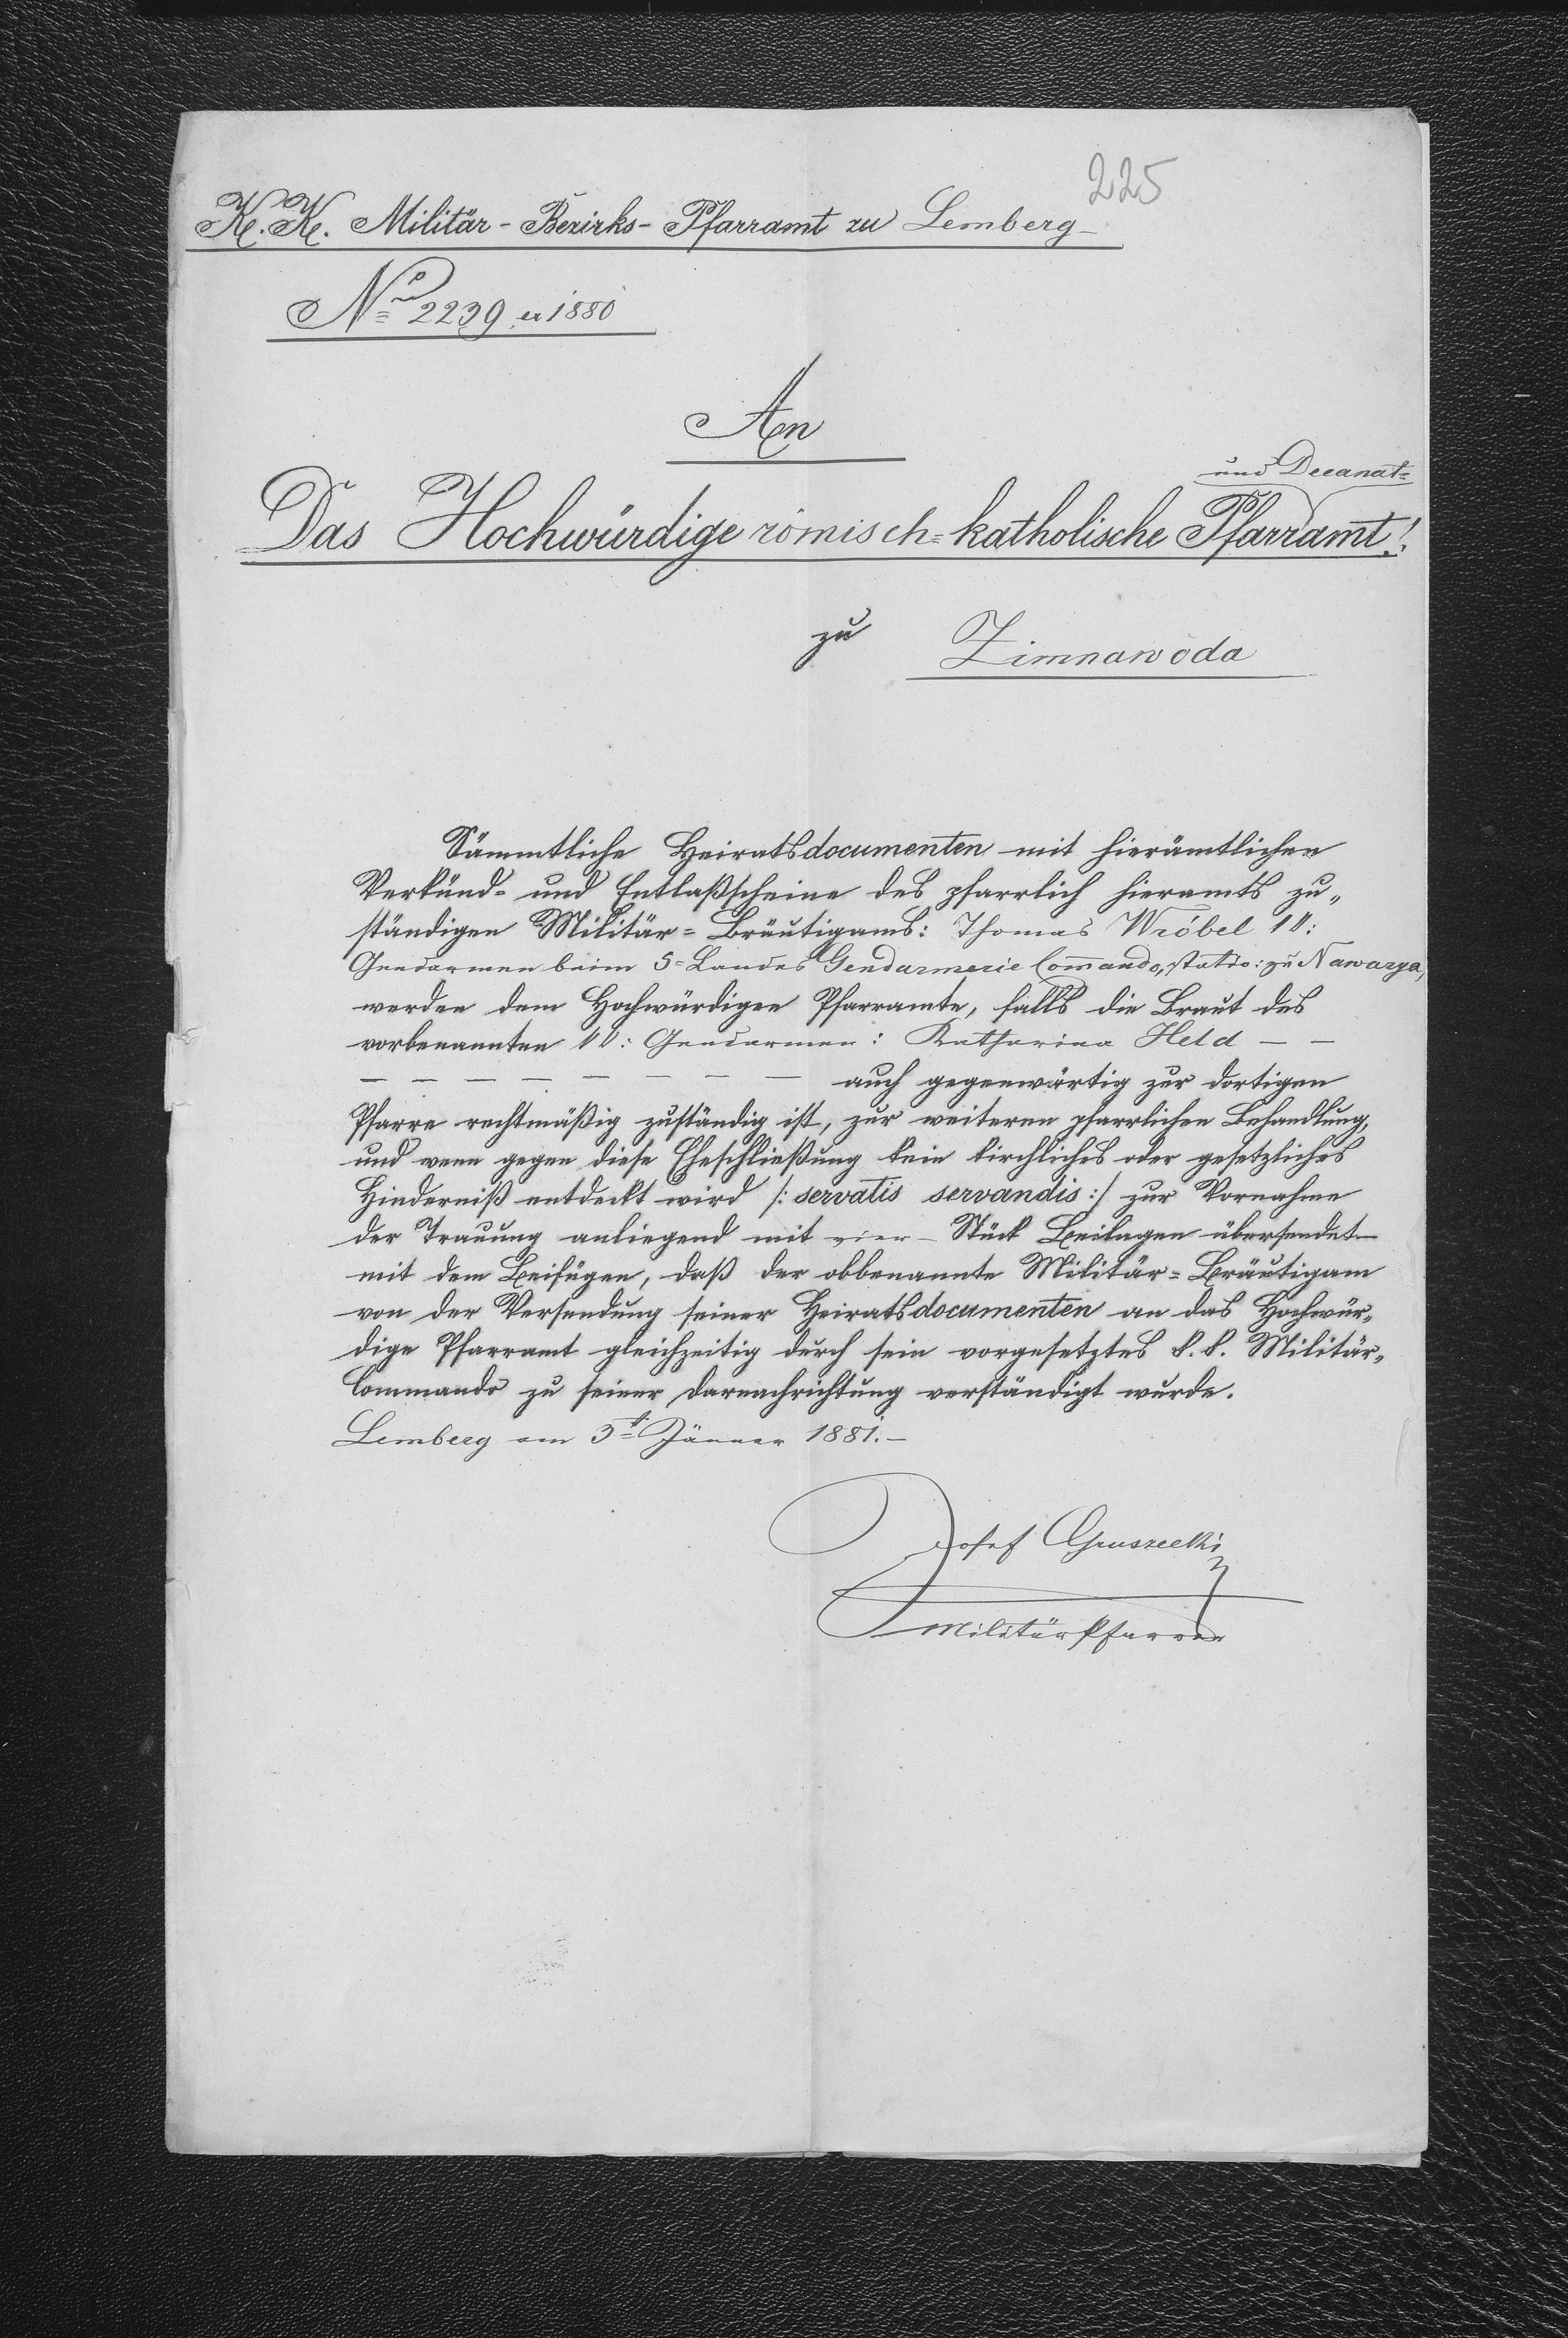 225
K. K. Militär-Bezirks-Pfarramt zu Lemberg
No 2239 ex 1880
An
und Decanat=
Das Hochwürdige römisch=katholische Pfarramt!
zu Zimnawoda
Sämmtliche Heiratsdocumenten mit hierämtlichen
Verkünd= und Entlaßscheine des pfarrlich hieramts zu„
ständigen Militär=Bräutigams: Thomas Wróbel
Gendarmen beim 5= Landes Gendarmerie Commando, statio: zu Nawarya,
werden dem Hochwürdigen Pfarramte, falls die Braut des
vorbenannten Gendarmen: Katharina Held – –
– – – – – – – – auch gegenwärtig zur dortigen
Pfarre rechtmäßig zuständig ist, zur weiteren pfarrlichen Behandlung,
und wenn gegen diese Eheschließung kein kirchliches oder gesetzliches
Hinderniß entdeckt wird /: servatis servandis :/ zur Vornahme
der Trauung anliegend mit vier – Stück Beilagen übersendet
mit dem Beifügen, daß der obbenannte Militär=Bräutigam
von der Versendung seiner Heiratsdocumenten an das Hochwür„
dige Pfarramt gleichzeitig durch sein vorgesetztes k. k. Militär„
Commando zu seiner Darnachrichtung verständigt wurde.
Lemberg am 3t Jänner 1881.–
Josef Gruszecki
Militär Pfarrer